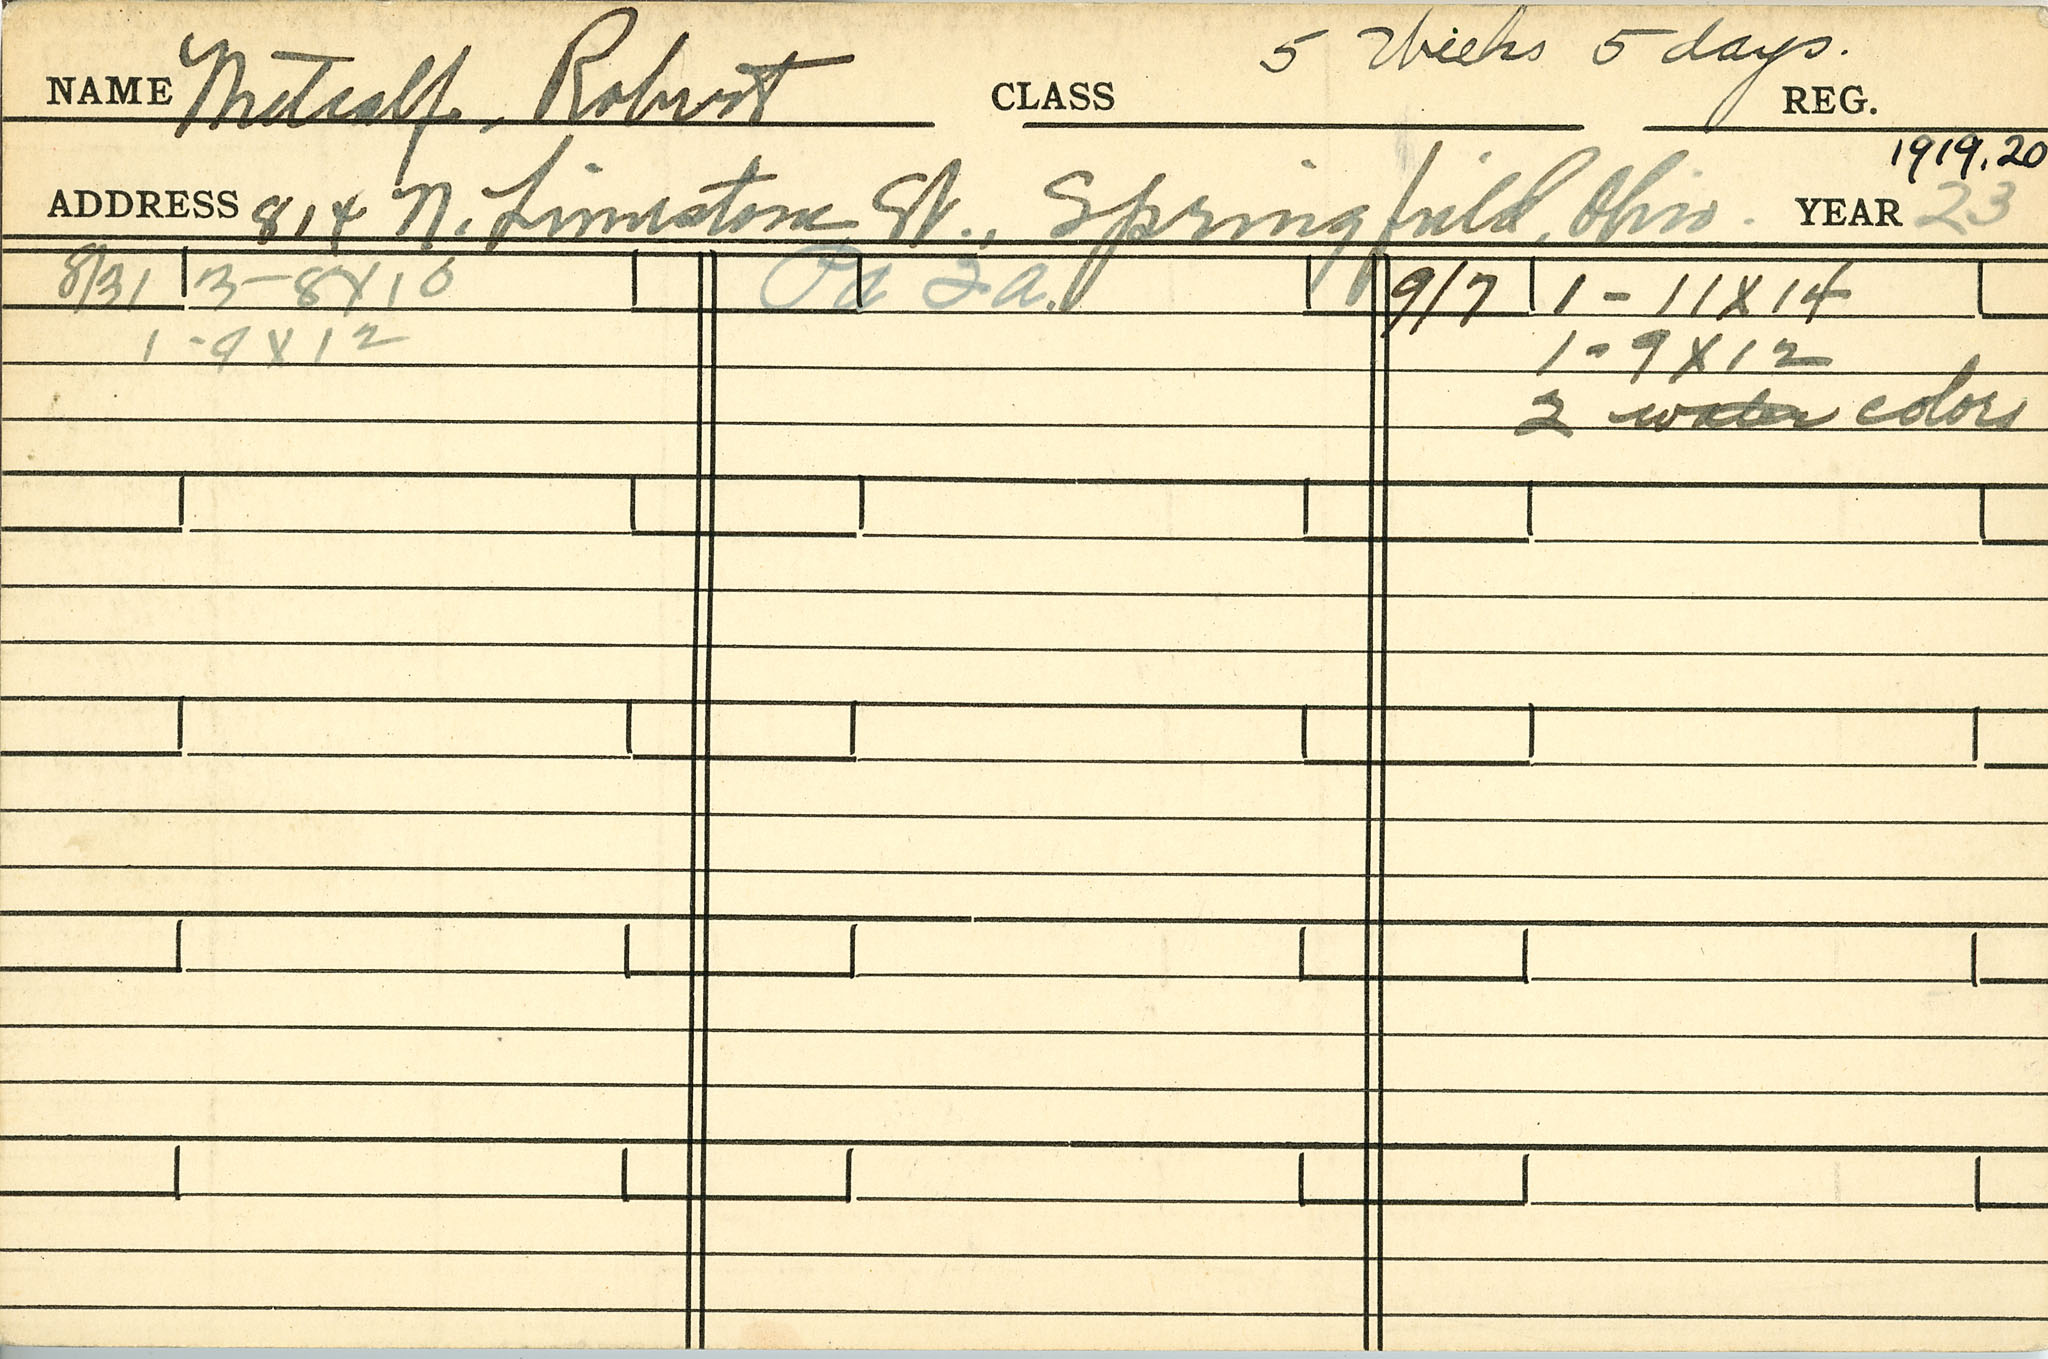 5 Weeks 5 days.
NAME Metcalf, Robert CLASS REG.
1919.20
ADDRESS 814 N. Limestone St., Springfield, Ohio. YEAR 23
8/31 3-8X10 Pd 9/7 1-11X14
1-9X12 1-9X12
2 water colors